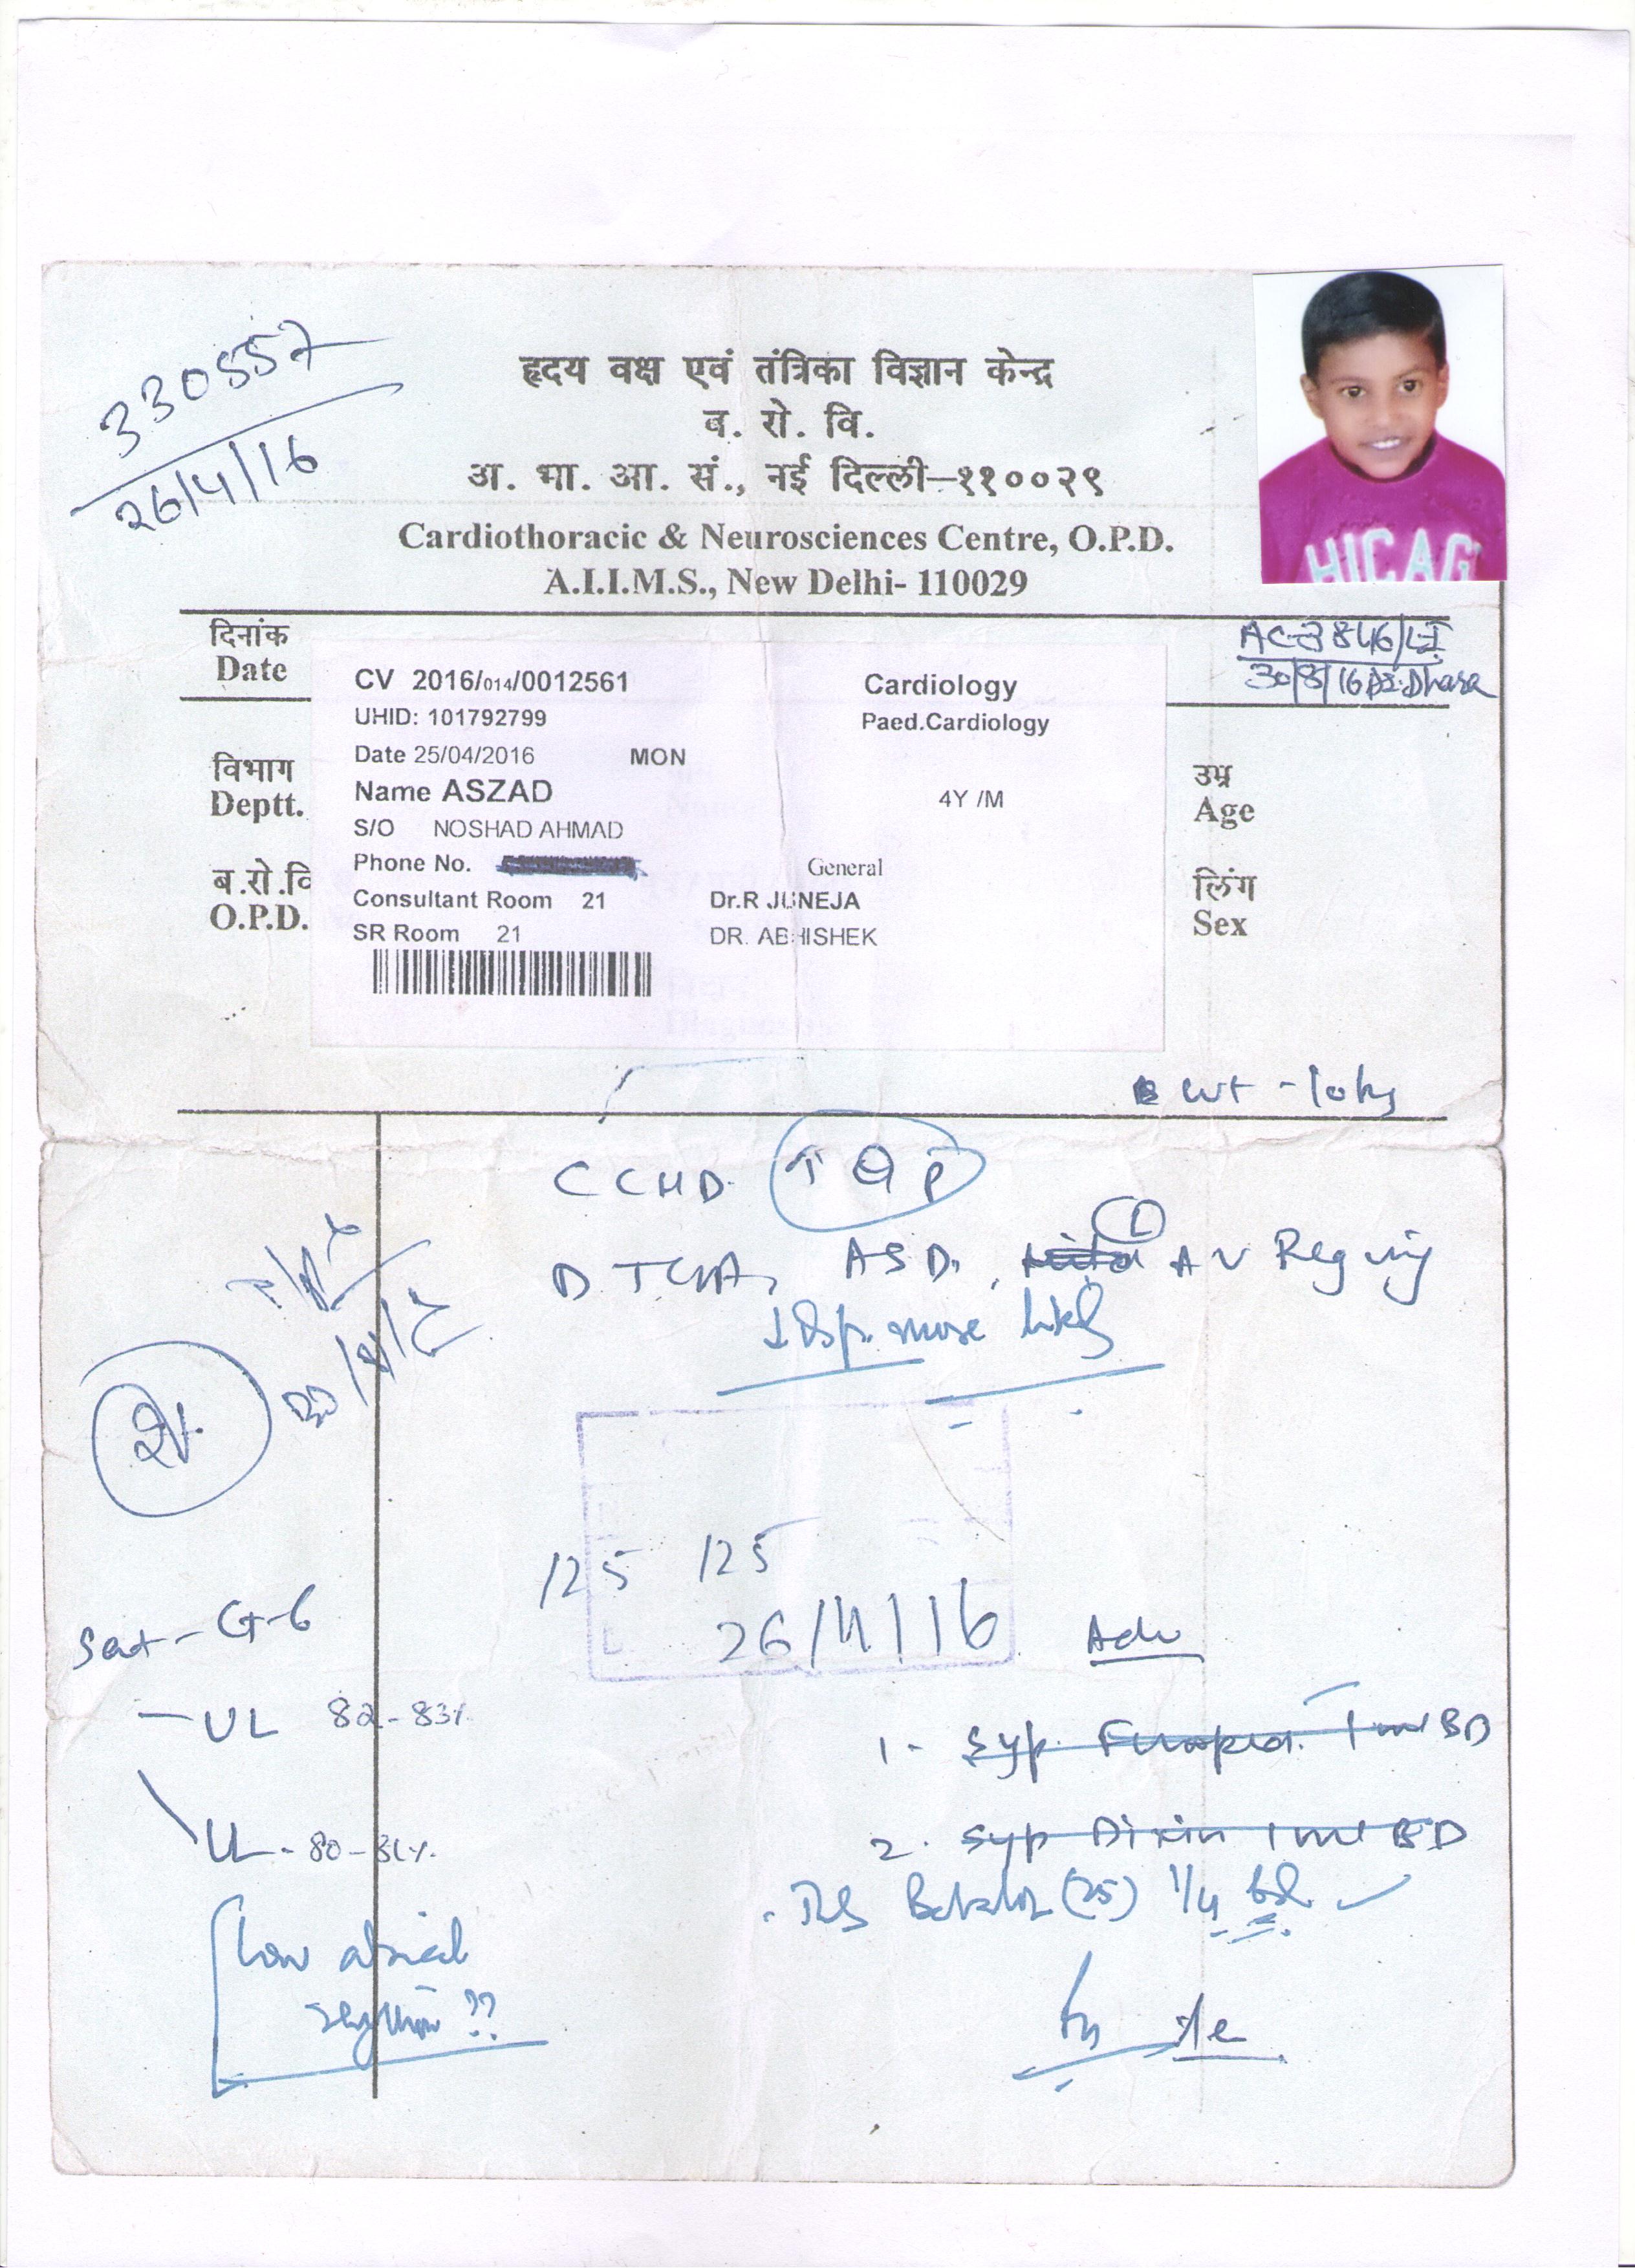 330557
26/4/16
हृदय वक्ष एवं तंत्रिका विज्ञान केन्द्र
ब. रो. वि.
अ. भा. आ. सं., नई दिल्ली-११००२९
Cardiothoracic & Neurosciences Centre, O.P.D.
A.I.I.M.S., New Delhi- 110029
HICAG
दिनांक
Date
AC-3846/LI
30/8/16 Dr. Dhara
CV 2016/014/0012561 Cardiology
UHID: 101792799 Paed.Cardiology
Date 25/04/2016 MON
विभाग
Deptt.
Name ASZAD 4Y /M
उम्र
Age
S/O NOSHAD AHMAD
Phone No. General
ब.रो.वि
O.P.D.
Consultant Room 21 Dr.R JUNEJA
SR Room 21 DR. ABHISHEK
लिंग
Sex
wt - 10kg
CCHD. TOP
DTGA, ASD, L AV Regurg
more likely
21.
125 125
26/4/16
Sat - G-6
UL 82-83%
LL - 80-81%
Adv
1- Syp. 1 ml BD
2. Syp Dixin 1 ml BD
(25) 1/4 bd
low atrial
rhythm ??